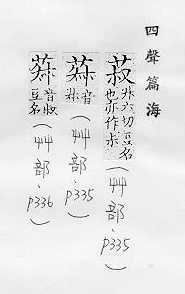 四聲篇海
菽升六切豆名也亦作尗（艸部、p335）
音（艸部、p335）
音 豆名（艸部、p336）